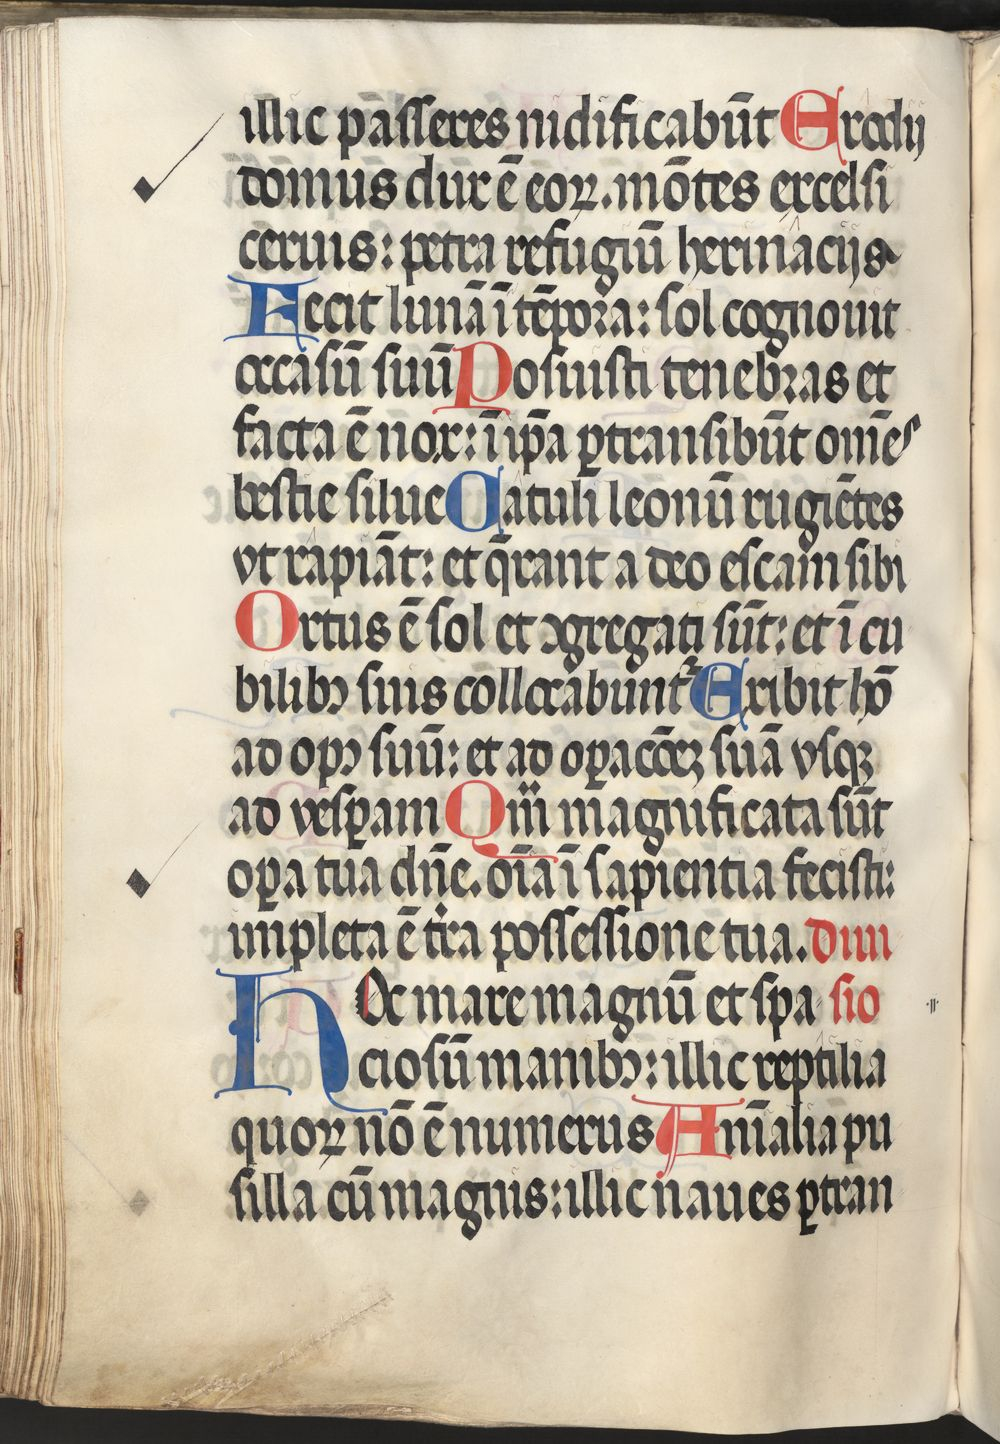 illic pāsseres nidificabūt Erodij
domus dux ē eoꝝ. mōtes excelsi
ceruis: petra refugiū herinacijs
Fecit lunā ī tēpora: sol cognouit
occasū suū Posuisti tenebras et
facta ē nox: ī ip̄a ꝑtransibūt om̄es
bestie silue Catuli leonū rugiētes
vt rapiāt: et q̄rant a deo escam sibi
Ortus ē sol et ꝯgregati sūt: et ī cu
bilibꝰ suis collocabunt᷑ Exibit hō
ad opꝰ suū: et ad oꝑacōeꝫ suā vsqꝫ
ad vesꝑam Qm̄ magnificata sūt
oꝑa tua dn̄e. oīa ī sapientia fecisti:
impleta ē t̄ra possessione tua. diui
Hoc mare magnū et spa sio
ciosū manibꝰ: illic reptilia
quoꝝ nō ē numerus Anīalia pu
silla cū magnis: illic naues ꝑtran